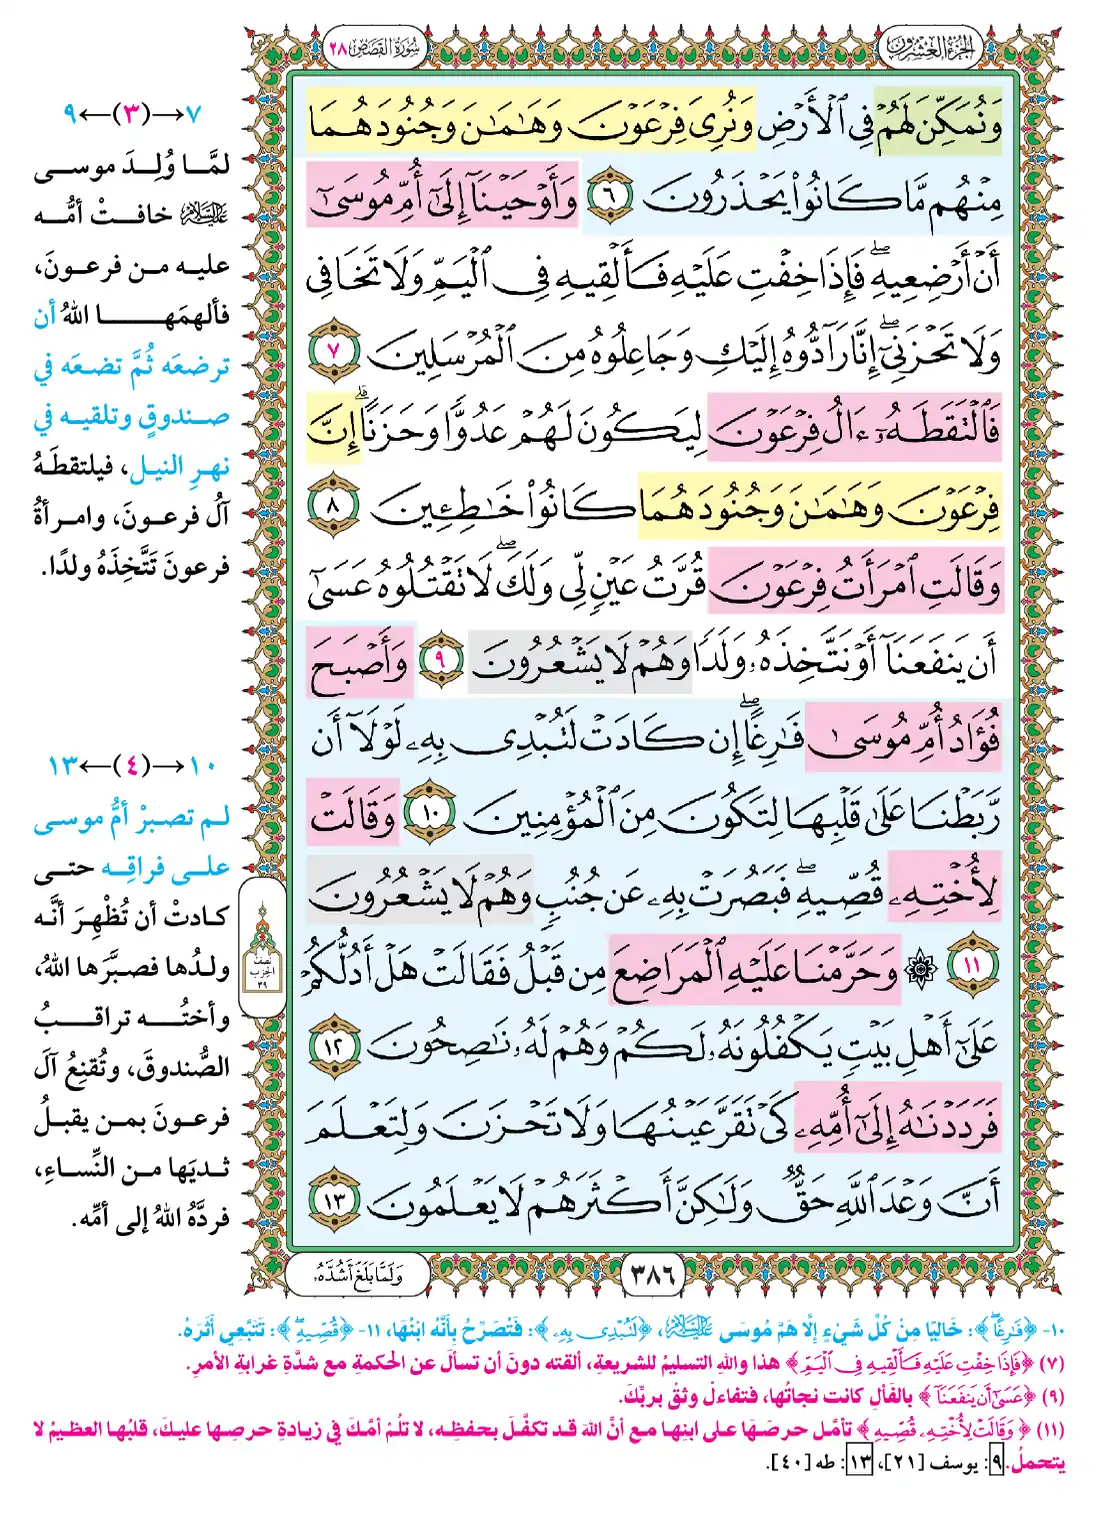 الجزء العشرون
سورة القصص ٢٨
وَنُمَكِّنَ لَهُمْ فِي ٱلْأَرْضِ وَنُرِيَ فِرْعَوْنَ وَهَـٰمَـٰنَ وَجُنُودَهُمَا
مِنْهُم مَّا كَانُوا۟ يَحْذَرُونَ ٦ وَأَوْحَيْنَآ إِلَىٰٓ أُمِّ مُوسَىٰٓ
أَنْ أَرْضِعِيهِ ۖ فَإِذَا خِفْتِ عَلَيْهِ فَأَلْقِيهِ فِي ٱلْيَمِّ وَلَا تَخَافِي
وَلَا تَحْزَنِيٓ ۖ إِنَّا رَآدُّوهُ إِلَيْكِ وَجَاعِلُوهُ مِنَ ٱلْمُرْسَلِينَ ٧
فَٱلْتَقَطَهُۥٓ ءَالُ فِرْعَوْنَ لِيَكُونَ لَهُمْ عَدُوًّا وَحَزَنًا ۗ إِنَّ
فِرْعَوْنَ وَهَـٰمَـٰنَ وَجُنُودَهُمَا كَانُوا۟ خَـٰطِـِٔينَ ٨
وَقَالَتِ ٱمْرَأَتُ فِرْعَوْنَ قُرَّتُ عَيْنٍ لِّي وَلَكَ ۖ لَا تَقْتُلُوهُ عَسَىٰٓ
أَن يَنفَعَنَآ أَوْ نَتَّخِذَهُۥ وَلَدًا وَهُمْ لَا يَشْعُرُونَ ٩ وَأَصْبَحَ
فُؤَادُ أُمِّ مُوسَىٰ فَـٰرِغًا ۖ إِن كَادَتْ لَتُبْدِي بِهِۦ لَوْلَآ أَن
رَّبَطْنَا عَلَىٰ قَلْبِهَا لِتَكُونَ مِنَ ٱلْمُؤْمِنِينَ ١٠ وَقَالَتْ
لِأُخْتِهِۦ قُصِّيهِ ۖ فَبَصُرَتْ بِهِۦ عَن جُنُبٍ وَهُمْ لَا يَشْعُرُونَ
١١ ۞ وَحَرَّمْنَا عَلَيْهِ ٱلْمَرَاضِعَ مِن قَبْلُ فَقَالَتْ هَلْ أَدُلُّكُمْ
عَلَىٰٓ أَهْلِ بَيْتٍ يَكْفُلُونَهُۥ لَكُمْ وَهُمْ لَهُۥ نَـٰصِحُونَ ١٢
فَرَدَدْنَـٰهُ إِلَىٰٓ أُمِّهِۦ كَيْ تَقَرَّ عَيْنُهَا وَلَا تَحْزَنَ وَلِتَعْلَمَ
أَنَّ وَعْدَ ٱللَّهِ حَقٌّ وَلَـٰكِنَّ أَكْثَرَهُمْ لَا يَعْلَمُونَ ١٣
٣٨٦
وَلَمَّا بَلَغَ أَشُدَّهُۥ
٧→(٣)←٩
لمَّا وُلِدَ موسى
عليه السلام خافتْ أمُّه
عليه من فرعونَ،
فألهمَها اللهُ أن
ترضعَه ثُمَّ تضعَه في
صندوقٍ وتلقيه في
نهرِ النيل، فيلتقطَهُ
آلُ فرعونَ، وامرأةُ
فرعونَ تَتَّخِذَهُ ولدًا.
١٠→(٤)←١٣
لم تصبرْ أمُّ موسى
على فراقِه حتى
كادتْ أن تُظْهِرَ أنَّه
ولدُها فصبَّرَها اللهُ،
وأختُه تراقبُ
الصُّندوقَ، وتُقنِعُ آلَ
فرعونَ بمن يقبلُ
ثديَها من النِّساءِ،
فردَّهُ اللهُ إلى أمِّه.
نصف
الحزب
٣٩
١٠- ﴿فَـٰرِغًا﴾: خَالِيًا مِنْ كُلِّ شَيْءٍ إِلَّا هَمَّ مُوسَى عليه السلام، ﴿لَتُبْدِي بِهِۦ﴾: فَتُصَرِّحُ بِأَنَّهُ ابْنُهَا، ١١- ﴿قُصِّيهِ﴾: تَتَبَّعِي أَثَرَهُ.
(٧) ﴿فَإِذَا خِفْتِ عَلَيْهِ فَأَلْقِيهِ فِي ٱلْيَمِّ﴾ هذا واللهِ التسليمُ للشريعةِ، ألقته دونَ أن تسألَ عن الحكمةِ مع شدَّةِ غرابةِ الأمرِ.
(٩) ﴿عَسَىٰٓ أَن يَنفَعَنَآ﴾ بالفألِ كانت نجاتُها، فتفاءلْ وثقْ بربِّكَ.
(١١) ﴿وَقَالَتْ لِأُخْتِهِۦ قُصِّيهِ﴾ تأمَّل حرصَهَا على ابنِها مع أنَّ اللهَ قد تكفَّلَ بحفظِه، لا تلُمْ أمَّكَ في زيادةِ حرصِها عليكَ، قلبُها العظيمُ لا
يتحملُ. ٩: يوسف [٢١]، ١٣: طه [٤٠].